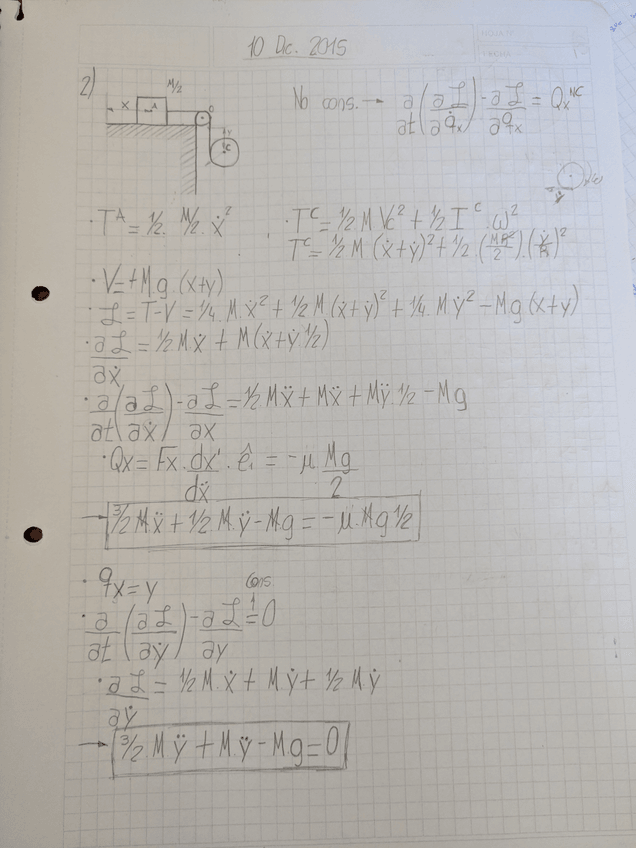 10 Dic. 2015
2)
M/2
X
A
C
No cons. → ∂/∂t (∂ℒ/∂q̇x) - ∂ℒ/∂qx = Qx^NC
· T^A = 1/2 · M/2 · ẋ²
· T^C = 1/2 M Vc² + 1/2 I^C · ω²
T^C = 1/2 M (ẋ+ẏ)² + 1/2 · (MR²/2) · (ẏ/R)²
· V = +Mg.(x+y)
· ℒ = T-V = 1/4. M.ẋ² + 1/2 M (ẋ+ẏ)² + 1/4 M ẏ² - Mg (x+y)
· ∂ℒ/∂ẋ = 1/2 Mẋ + M(ẋ+ẏ 1/2)
· ∂/∂t (∂ℒ/∂ẋ) - ∂ℒ/∂x = 1/2 Mẍ + Mẍ + Mÿ.1/2 - Mg
· Qx = Fx. dx'/dẋ . ê₁ = -μ Mg/2
→ 3/2 Mẍ + 1/2 M.ÿ - Mg = -μ.Mg 1/2
· qx = y
Cons
· ∂/∂t (∂ℒ/∂ẏ) - ∂ℒ/∂y = 0
· ∂ℒ/∂ẏ = 1/2 M.ẋ + Mẏ + 1/2 Mẏ
→ 3/2 M ÿ + M.ÿ - Mg = 0